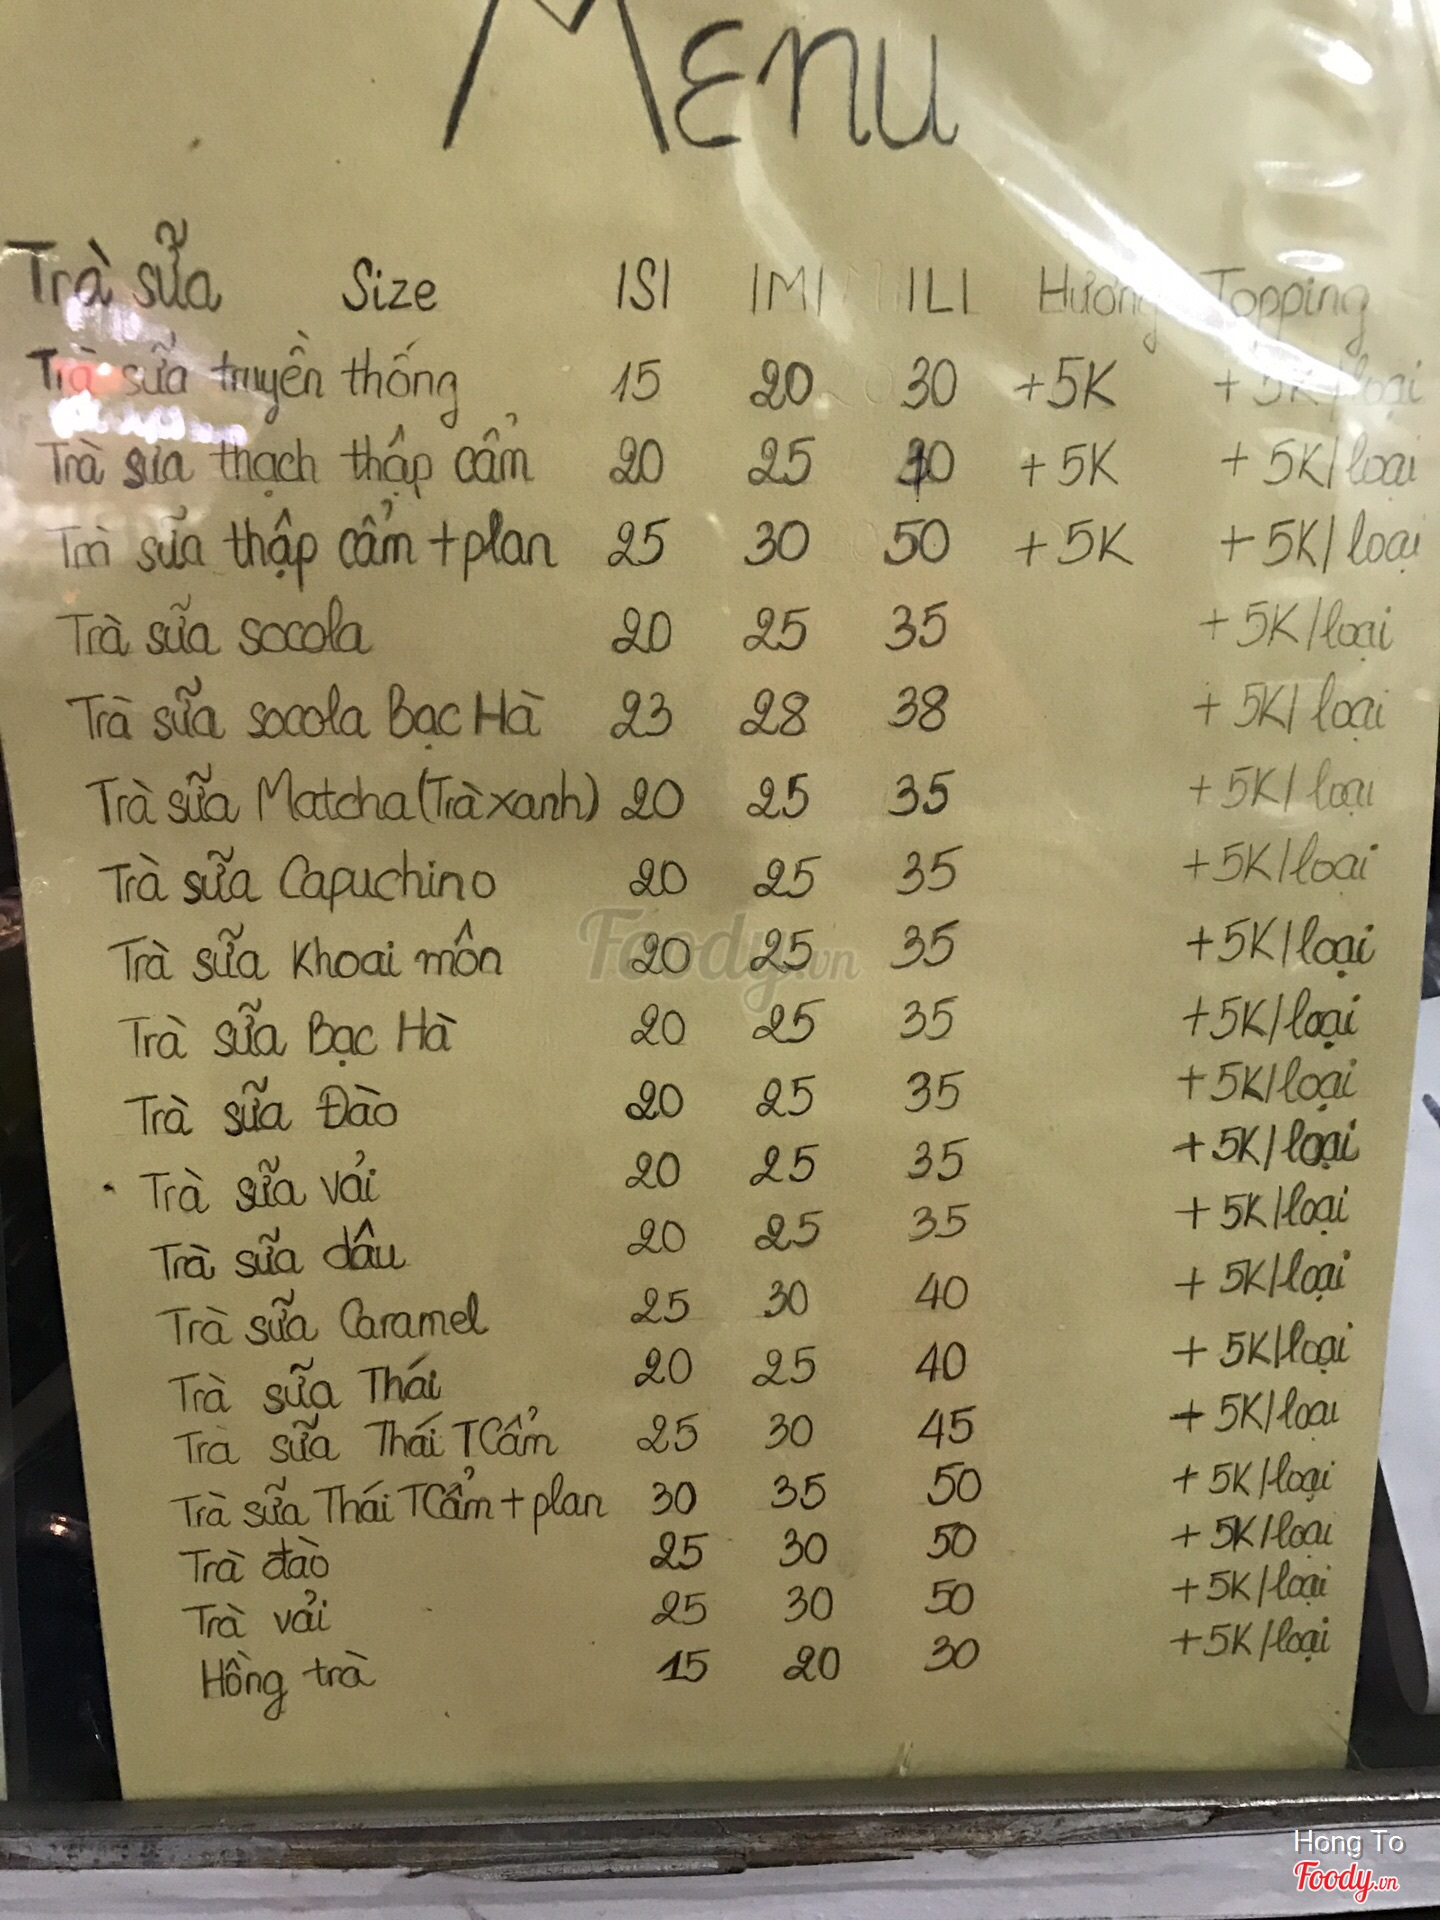 Menu
Trà sữa Size |S| |M| |L| Hương Topping
Trà sữa truyền thống 15 20 30 +5K +5K/loại
Trà sữa thạch thập cẩm 20 25 +5K +5K/loại
Trà sữa thập cẩm + plan 25 30 50 +5K +5K/loại
Trà sữa socola 20 25 35 +5K/loại
Trà sữa socola Bạc Hà 23 28 38 +5K/loại
Trà sữa Matcha (Trà xanh) 20 25 35 +5K/loại
Trà sữa Capuchino 20 25 35 +5K/loại
Trà sữa Khoai môn 20 25 35 +5K/loại
Trà sữa Bạc Hà 20 25 35 +5K/loại
Trà sữa Đào 20 25 35 +5K/loại
Trà sữa vải 20 25 35 +5K/loại
Trà sữa dâu 20 25 35 +5K/loại
Trà sữa Caramel 25 30 40 +5K/loại
Trà sữa Thái 20 25 40 +5K/loại
Trà sữa Thái TCẩm 25 30 45 +5K/loại
Trà sữa Thái TCẩm + plan 30 35 50 +5K/loại
Trà đào 25 30 50 +5K/loại
Trà vải 25 30 50 +5K/loại
Hồng trà 15 20 30 +5K/loại
Foody.vn
Hong To
Foody.vn